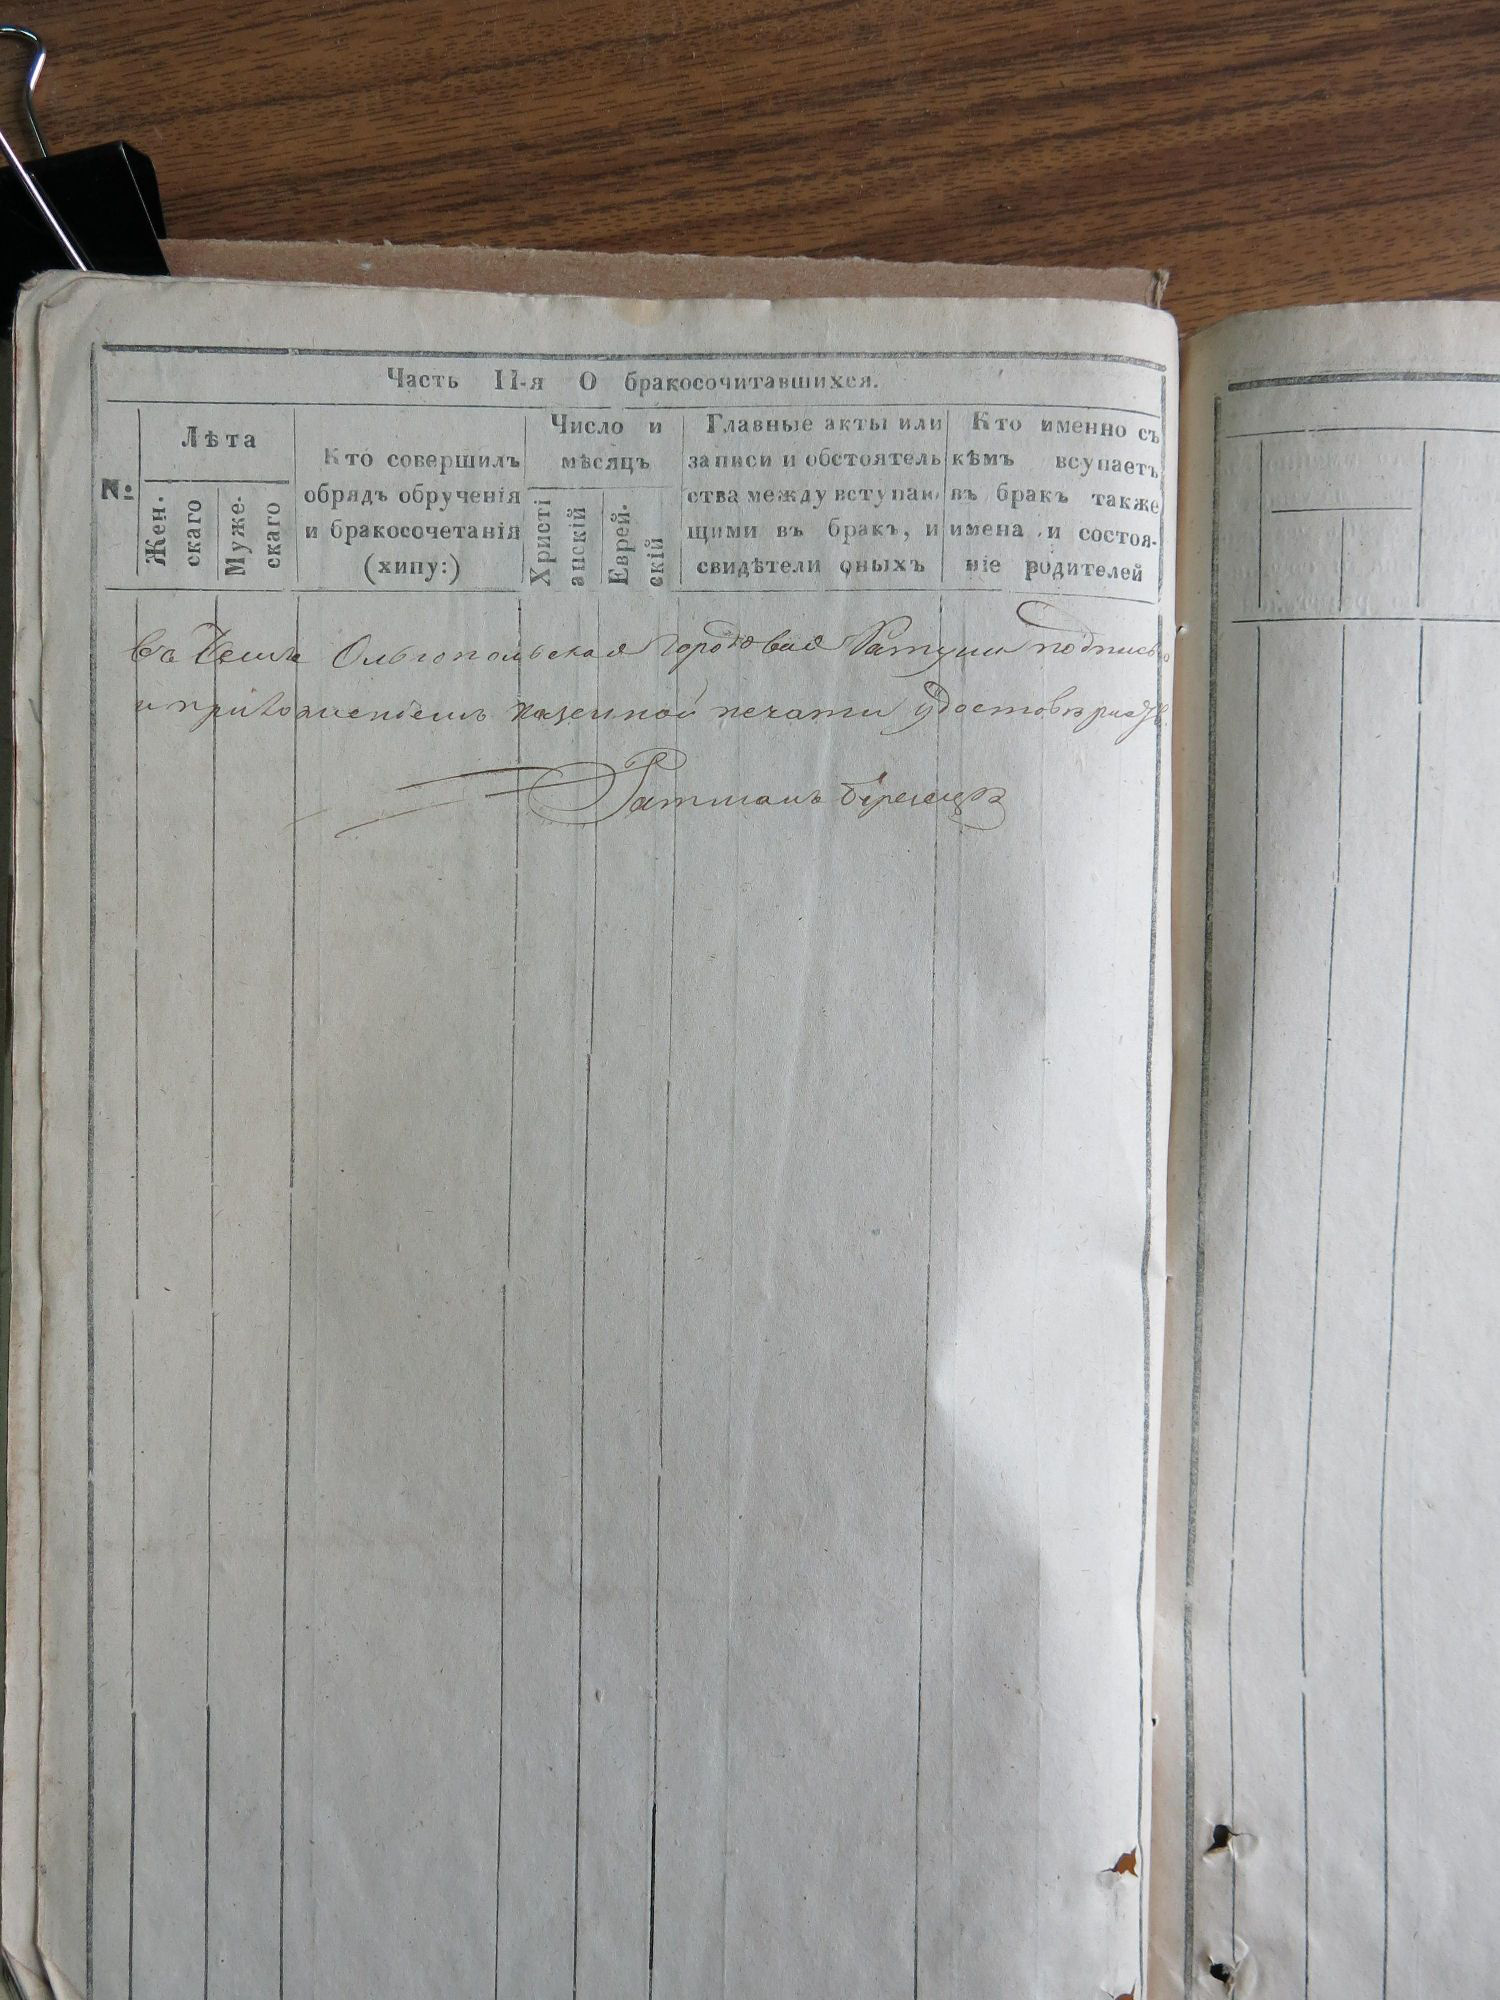 Часть II-я О бракосочитавшихся.
№:
Лѣта
Жен.
скаго
Муже-
скаго
Кто совершилъ
обрядъ обрученія
и бракосочетанія
(хипу:)
Число и
мѣсяцъ
Христі
анскій
Еврей-
скій
Главные акты или
записи и обстоятель
ства между вступаю
щими въ бракъ, и
свидѣтели оныхъ
Кто именно съ
кѣмъ всупаетъ
въ бракъ также
имена и состоя-
ніе родителей
въ чемъ Ольгопольская городовая Ратуша подписью
и приложениемъ казенной печати удостовѣряетъ.
Ратманъ